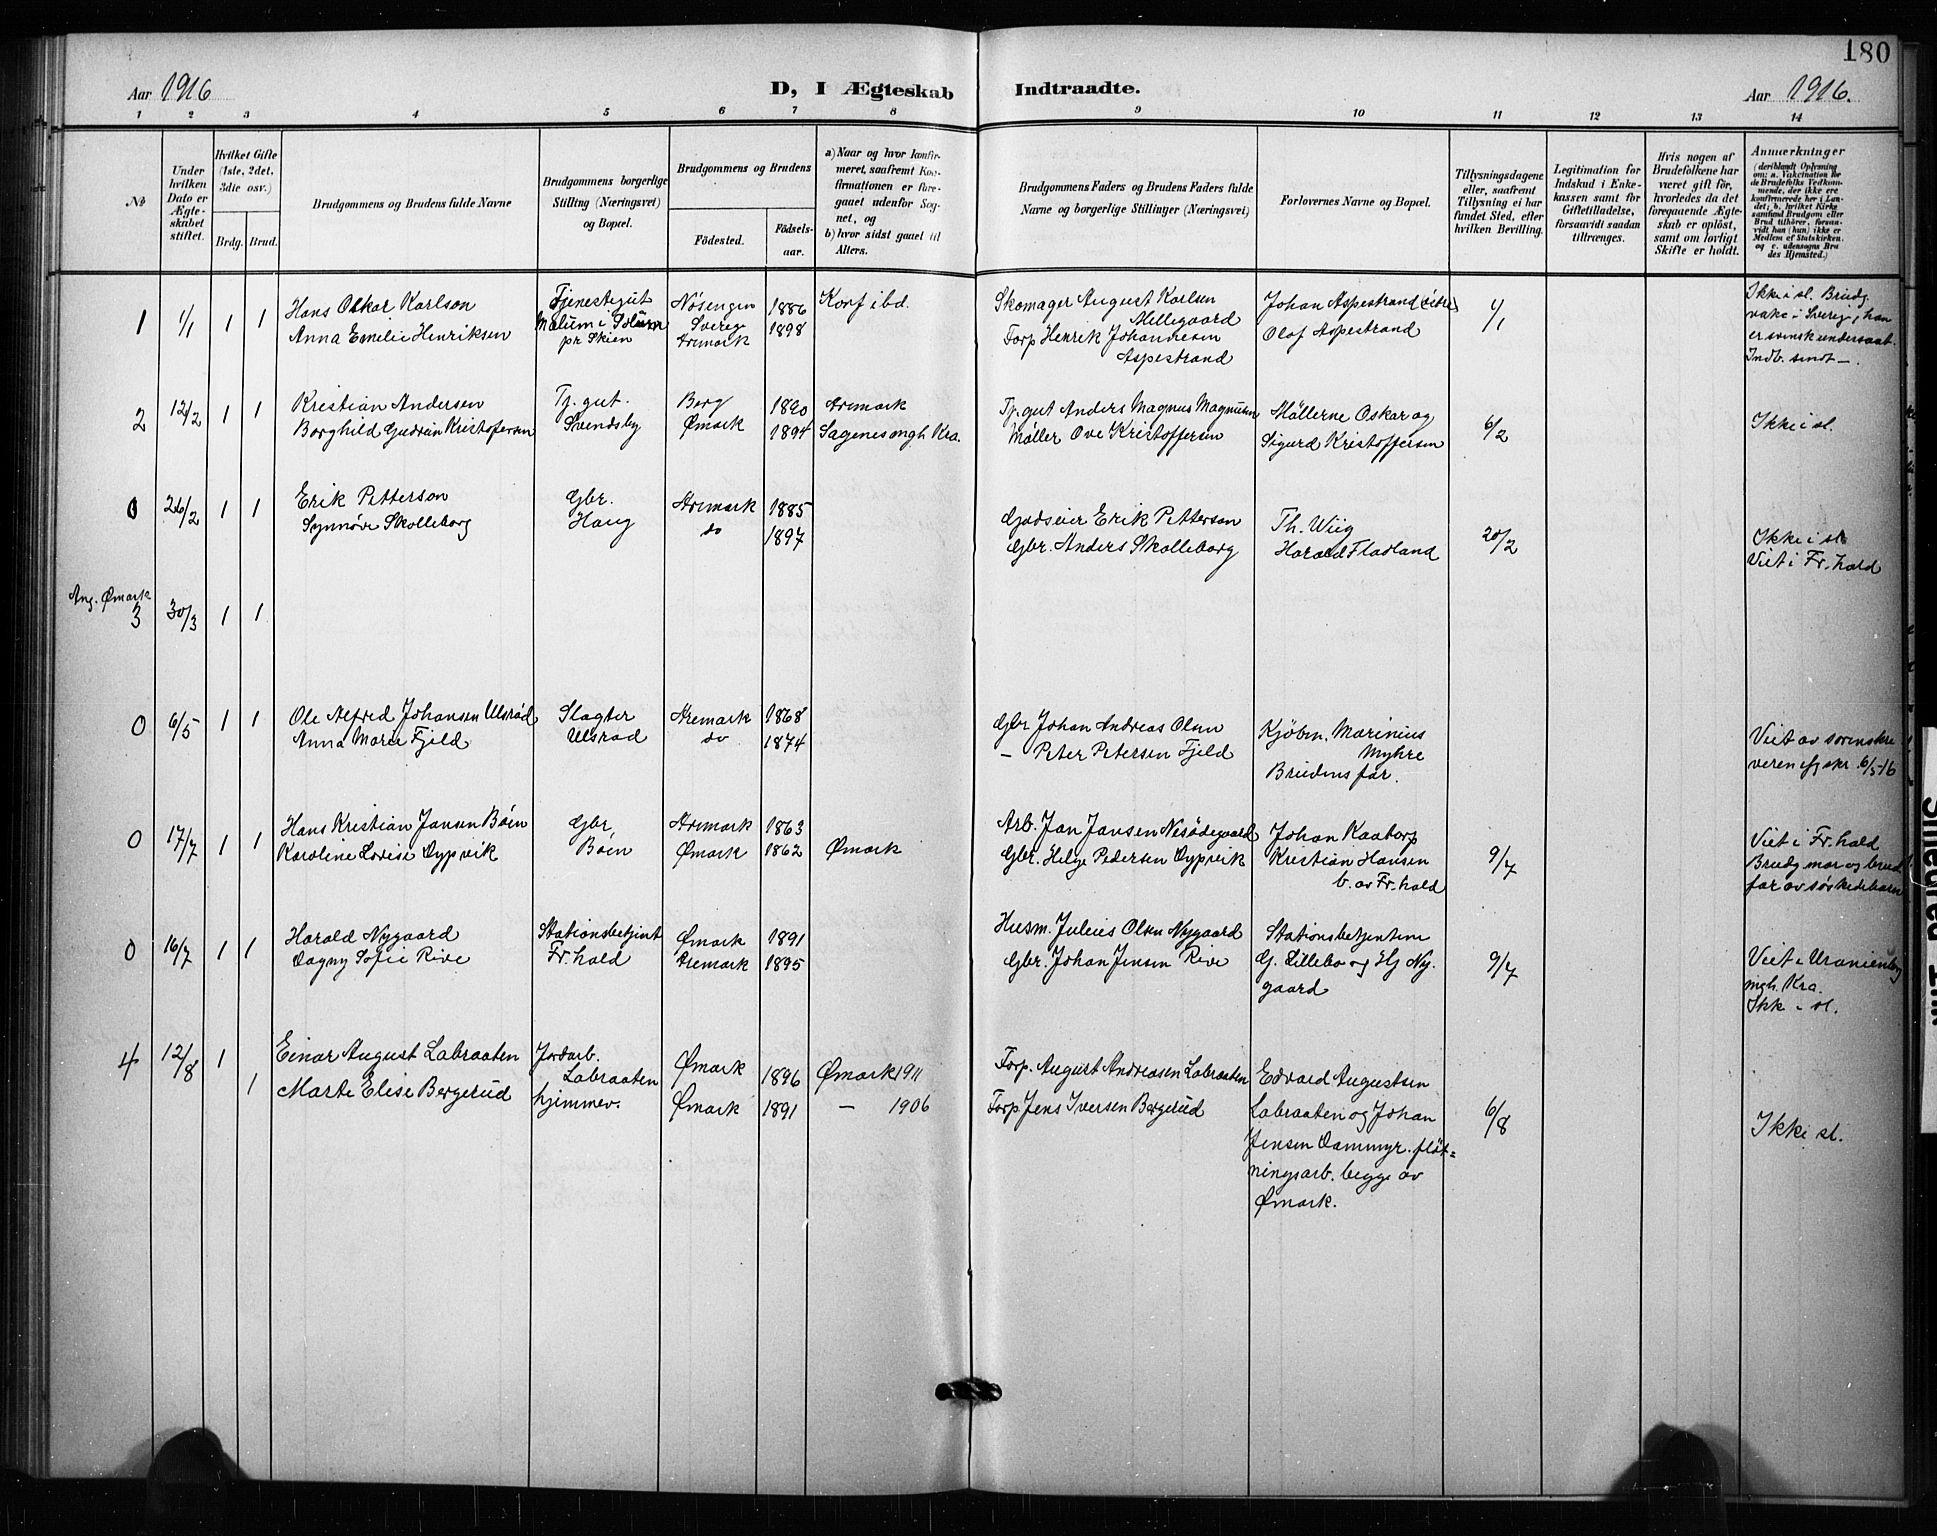 180
Aar 1916
D, I Ægteskab Indtraadte.
Aar 1916.
1 2 3 4 5 6 7 8 9 10 11 12 13 14
No
Under hvilken Dato er Ægte-skabet stiftet.
Hvilket Gifte (1ste, 2det, 3die osv.)
Brdg. Brud.
Brudgommens og Brudens fulde Navne
Brudgommens borgerlige Stilling (Næringsvei) og Bopæl.
Brudgommens og Brudens
Födested.
Födsels-aar.
a) Naar og hvor konfir-meret, saafremt Kon-firmationen er fore-gaaet udenfor Sog-net, og
b) hvor sidst gaaet til Alters.
Brudgommens Faders og Brudens Faders fulde Navne og borgerlige Stillinger (Næringsvei)
Forlovernes Navne og Bopæl.
Tillysningsdagene eller, saafremt Tillysning ei har fundet Sted, efter hvilken Bevilling.
Legitimation for Indskud i Enke-kassen samt for Giftetilladelse, forsaavidt saadan tiltrænges.
Hvis nogen af Brudefolkene har været gift för, hvorledes da det foregaaende Ægte-skab er oplöst, samt om lovligt Skifte er holdt.
Anmærkninger (deriblandt Oplysning om: a. Vakcination for de Brudefolks Vedkom-mende, der ikke ere konfirmerede her i Lan-det; b. hvilket Kirke-samfund Brudgom eller Brud tilhörer, forsaa-vidt han (hun) ikke er Medlem af Statskirken. og c. udensogns Bru-des Hjemsted.)
1 1/1 1 1
Hans Oskar Karlson
Anna Emelie Henriksen
Tjenestegut
Melum i Solum
pr Skien
Nösengen
Sverig
Aremark
1886
1898
Konf ibd.
Skomager August Karlsen
Mellegaard
Torp Henrik Johannesen
Aspestrand
Johan Aspestrand
Olof Aspestrand
1/1
Ikke i sl. Brudg.
vakc i Sverig, han
er svensk undersaat.
Indb. sendt —.
2 12/2 1 1
Kristian Andersen
Borghild Gudrun Kristofersen
Tj. gut.
Svendsby
Berg
Ømark
1890
1894
Aremark
Sagenes mgh Kra.
Tj. gut Anders Magnus Magnusen
Møller Ove Kristoffersen
Møllerne Oskar og
Sigurd Kristoffersen
6/2
Ikke i sl.
0 26/2 1 1
Erik Petterson
Synnöve Skolleborg
Gbr.
Haug
Aremark
do
1885
1897
Godseier Erik Petterson
Gbr. Anders Skolleborg
Th. Wiig
Harald Fladland
20/2
Ikke i sl
Viet i Fr. hald
Ang. Ømark
3 30/3 1 1
0 6/5 1 1
Ole Alfred Johansen Ulsröd
Anna Marie Fjeld
Slagter
Ulsrød
Aremark
do
1868
1874
Gbr Johan Andreas Olsen
— Peter Petersen Fjeld
Kjöbm. Marinius
Myhre
Brudens far.
Viet av sorenskri
veren efg skr. 6/5-16
0 17/7 1 1
Hans Kristian Jansen Böen
Karoline Lovise Dypvik
Gbr,
Böen
Aremark
Ømark
1863
1862
Ømark
Arb. Jan Jansen Nesödegaard
Gbr. Helge Pedersen Dypvik
Johan Kaatorp
Kristian Hansen
b. av Fr. hald
9/7
Viet i Fr. hald
Brudg mor og brud
far av søskendebarn
0 16/7 1 1
Harald Nygaard
Dagny Sofie Rive
Stationsbetjent
Fr. hald
Ømark
Aremark
1891
1895
Husm. Julius Olsen Nygaard
Gbr. Johan Jensen Rive
Stationsbetjentene
G. Lillebo og Hj Ny-
gaard
9/7
Viet i Uranienborg
mgh. Kra.
Ikk i sl.
4 12/8 1
1
Einar August Labraaten
Marte Elise Bergerud
Jordarb.
Labraaten
hjemmev.
Ømark
Ømark
1896
1891
Ømark 1911
— 1906
Torp. August Andreasen Labraaten
Torp Jens Iversen Bergerud
Edvard Augustsen
Labraaten og Johan
Jensen Dammyr. flöt=
ningsarb. begge av
Ømark.
6/8
Ikke sl.